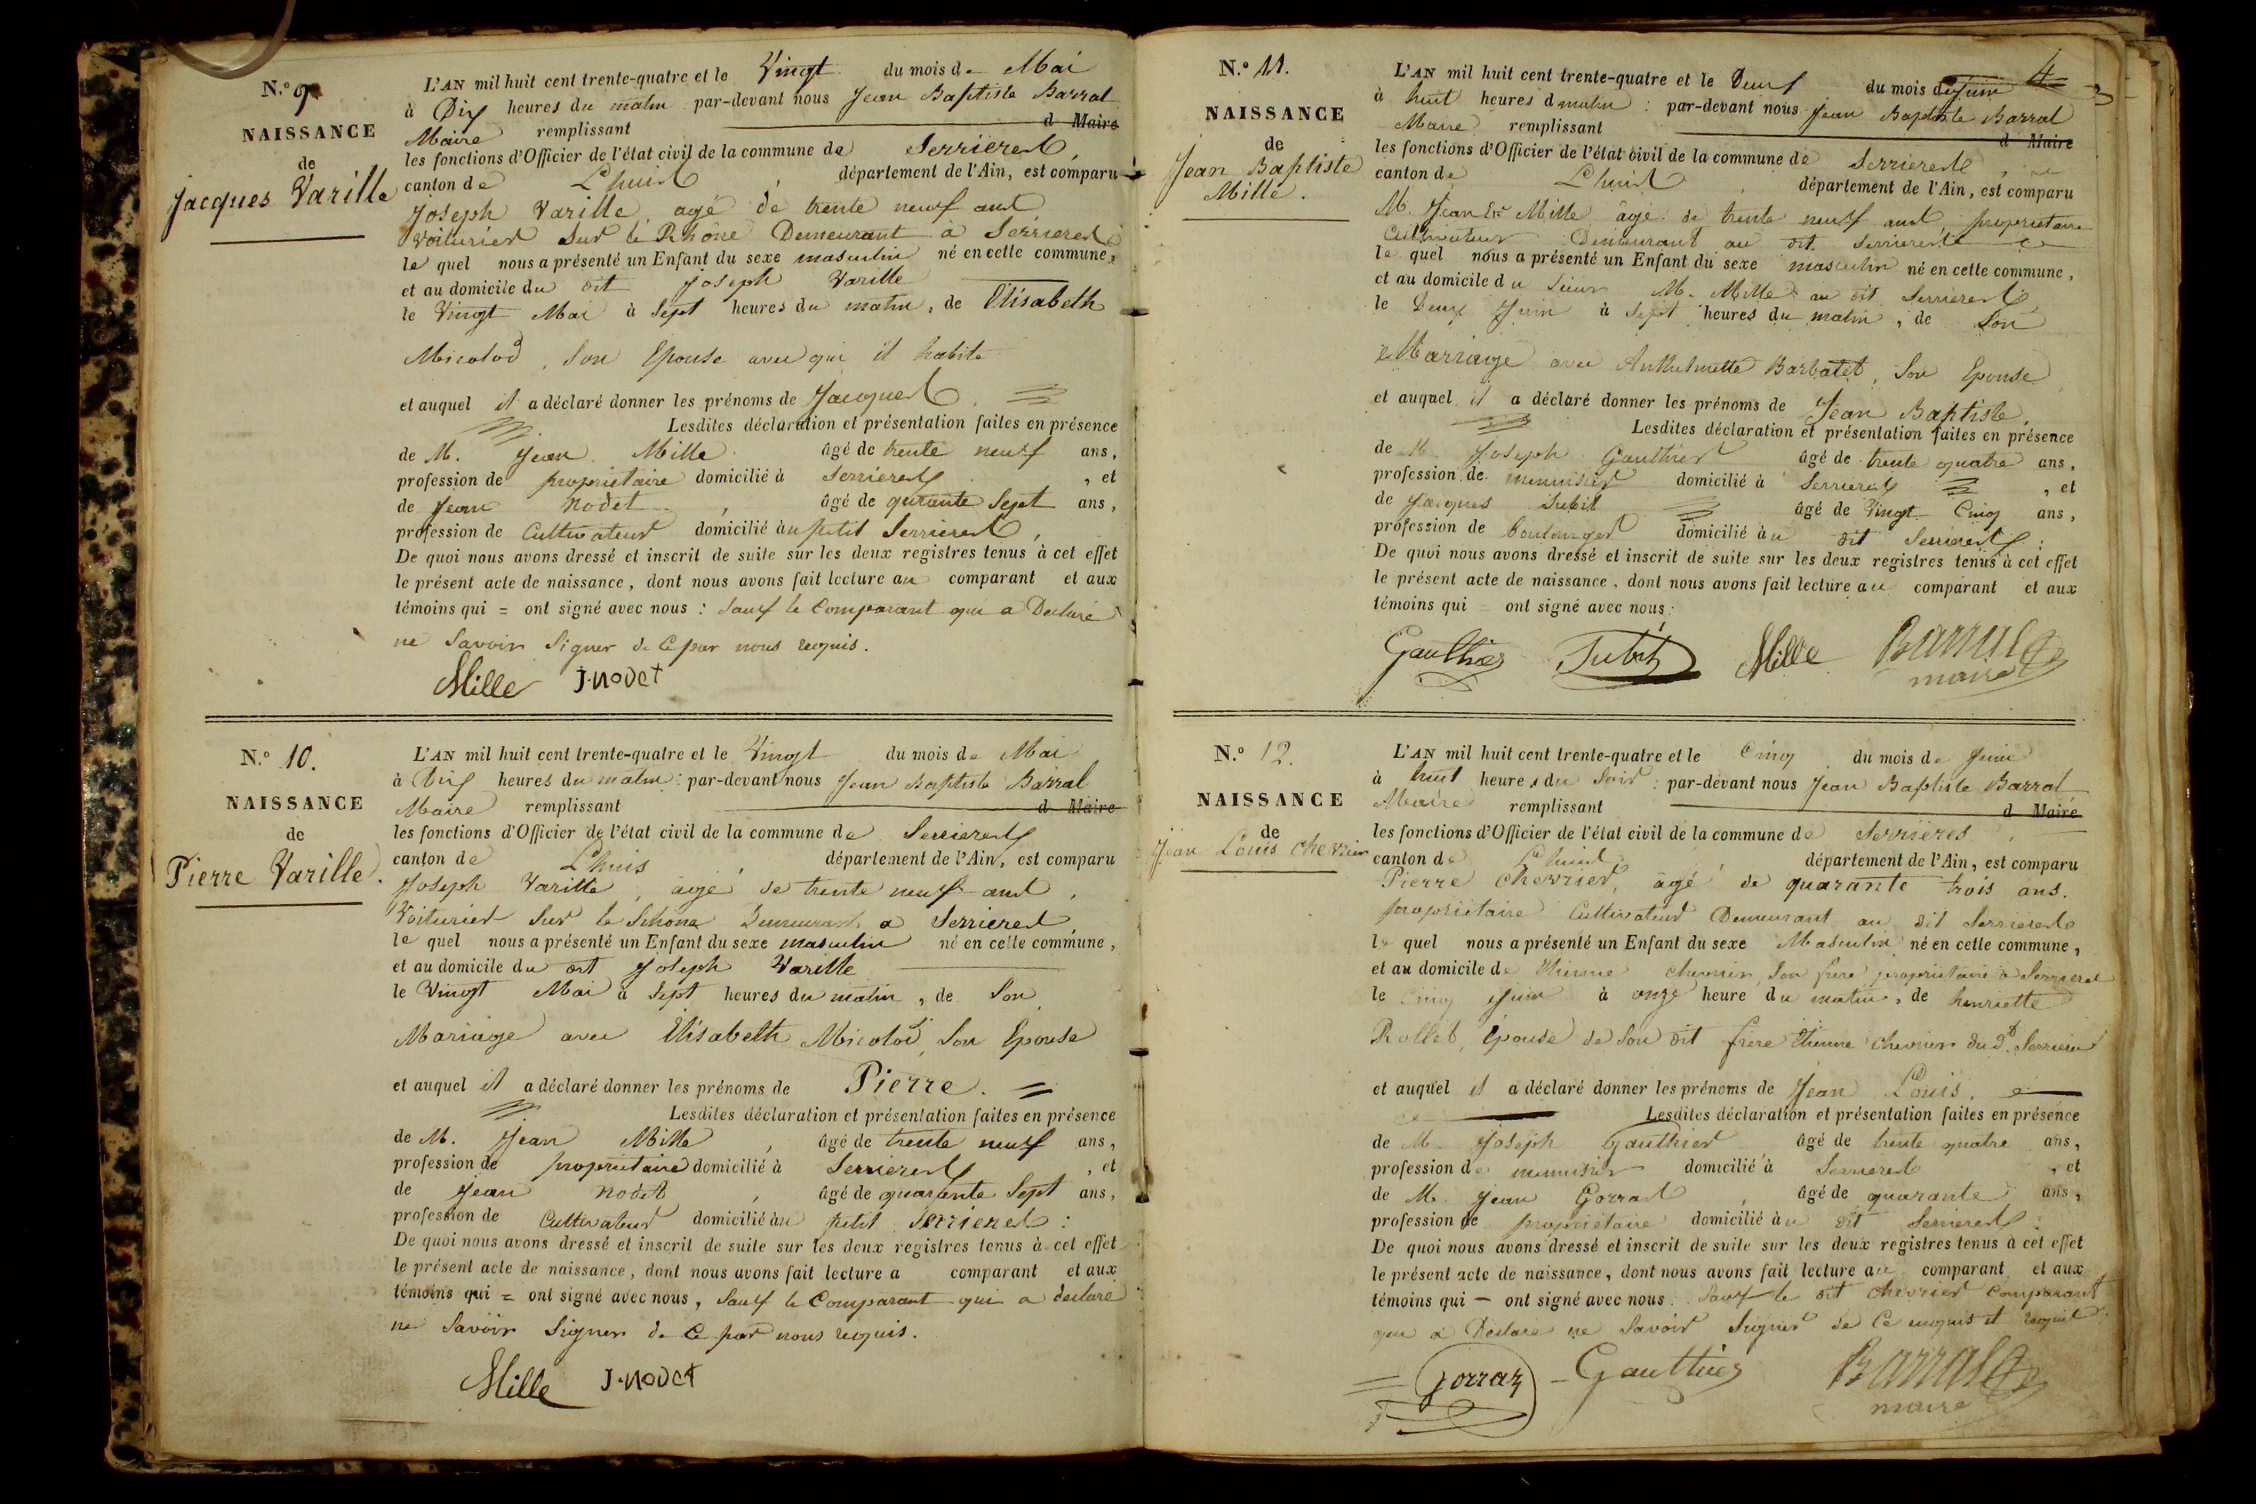 N.º 9.
NAISSANCE
de
Jacques Varille
L'AN mil huit cent trente-quatre et le Vingt du mois de Mai
à Dix heures du matin par-devant nous Jean Baptiste Barral
Maire remplissant d Maire
les fonctions d'Officier de l'état civil de la commune de Serrieres,
canton de Lhuis, département de l'Ain, est comparu
Joseph Varille, agé de trente neuf ans
Voiturier Sur le Rhône Demeurant a Serrieres
le quel nous a présenté un Enfant du sexe masculin né en cette commune,
et au domicile du dit Joseph Varille
le Vingt Mai à Sept heures du matin, de Elisabeth
Micoloi, Son Epouse avec qui il habite
et auquel il a déclaré donner les prénoms de Jacques
Lesdites déclaration et présentation faites en présence
de M. Jean Mille âgé de trente neuf ans,
profession de propriétaire domicilié à Serrieres, et
de Jean Nodet, âgé de qurante Sept ans,
profession de Cultivateur domicilié au petit Serrieres,
De quoi nous avons dressé et inscrit de suite sur les deux registres tenus à cet effet
le présent acte de naissance, dont nous avons fait lecture au comparant et aux
témoins qui = ont signé avec nous : Sauf le Comparant qui a Declaré
ne Savoir Signer de Ce par nous requis.
Mille J. Nodet
N.º 10.
NAISSANCE
de
Pierre Varille.
L'AN mil huit cent trente-quatre et le Vingt du mois de Mai
à Dix heures du matin : par-devant nous Jean Baptiste Barral
Maire remplissant d Maire
les fonctions d'Officier de l'état civil de la commune de Serrieres
canton de Lhuis, département de l'Ain, est comparu
Joseph Varille, agé de trente neuf ans,
Voiturier Sur le Demeurant a Serrieres,
le quel nous a présenté un Enfant du sexe masculin né en cette commune,
et au domicile du dit Joseph Varille
le Vingt Mai à Sept heures du matin, de Son
Mariage avec Elisabeth Micoloi, Son Epouse
et auquel il a déclaré donner les prénoms de Pierre.
Lesdites déclaration et présentation faites en présence
de M. Jean Mille, âgé de trente neuf ans,
profession de propriétaire domicilié à Serrieres, et
de Jean Nodet, âgé de quarante Sept ans,
profession de Cultivateur domicilié au petit Serrieres :
De quoi nous avons dressé et inscrit de suite sur les deux registres tenus à cet effet
le présent acte de naissance, dont nous avons fait lecture a comparant et aux
témoins qui = ont signé avec nous, Sauf le Comparant qui a declaré
ne Savoir Signer de Ce par nous requis.
Mille J. Nodet
4
N.º 11.
NAISSANCE
de
Jean Baptiste
Mille.
L'AN mil huit cent trente-quatre et le Deux du mois de Juin
à huit heures d matin : par-devant nous Jean Baptiste Barral
Maire remplissant d Maire
les fonctions d'Officier de l'état civil de la commune de Serrieres,
canton de Lhuis, département de l'Ain, est comparu
M. Jean Mille âgé de trente neuf ans, propriétaire
Cultivateur Demeurant au dit Serrieres
le quel nous a présenté un Enfant du sexe masculin né en cette commune,
et au domicile du Sieur M. Mille au dit Serrieres,
le Deux Juin à Sept heures du matin, de Son
Mariage avec Anthelmette Barbatet, Son Epouse
et auquel il a déclaré donner les prénoms de Jean Baptiste,
Lesdites déclaration et présentation faites en présence
de M. Joseph Gauthier âgé de trente quatre ans,
profession de menuisier domicilié à Serrieres, et
de Jacques Subit âgé de Vingt Cinq ans,
profession de boulanger domicilié au dit Serrieres :
De quoi nous avons dressé et inscrit de suite sur les deux registres tenus à cet effet
le présent acte de naissance, dont nous avons fait lecture au comparant et aux
témoins qui ont signé avec nous :
Gauthier Subit Mille Barral
maire
N.º 12.
NAISSANCE
de
Jean Louis Chevrier
L'AN mil huit cent trente-quatre et le Cinq du mois de Juin
à huit heures du Soir : par-devant nous Jean Baptiste Barral
Maire remplissant d Maire
les fonctions d'Officier de l'état civil de la commune de Serrières,
canton de Lhuis, département de l'Ain, est comparu
Pierre Chevrier, âgé de quarante trois ans.
propriétaire Cultivateur Demeurant au dit Serrieres
le quel nous a présenté un Enfant du sexe Masculin né en cette commune,
et au domicile de Etienne Chevrier Son frere propriétaire a Serrieres
le Cinq Juin à onze heure du matin, de henriette
Rollet, Epouse de Son dit frere Etienne Chevrier du dt Serrieres
et auquel il a déclaré donner les prénoms de Jean Louis.
Lesdites déclaration et présentation faites en présence
de M. Joseph Gauthier âgé de trente quatre ans,
profession de menuisier domicilié à Serrieres, et
de M. Jean Gorraz, âgé de quarante ans,
profession de propriétaire domicilié au dit Serrieres :
De quoi nous avons dressé et inscrit de suite sur les deux registres tenus à cet effet
le présent acte de naissance, dont nous avons fait lecture au comparant et aux
témoins qui — ont signé avec nous. Sauf le dit Chevrier Comparant
qui a Déclaré ne Savoir Signer de Ce enquis et requis
Gorraz Gauthier Barral
maire